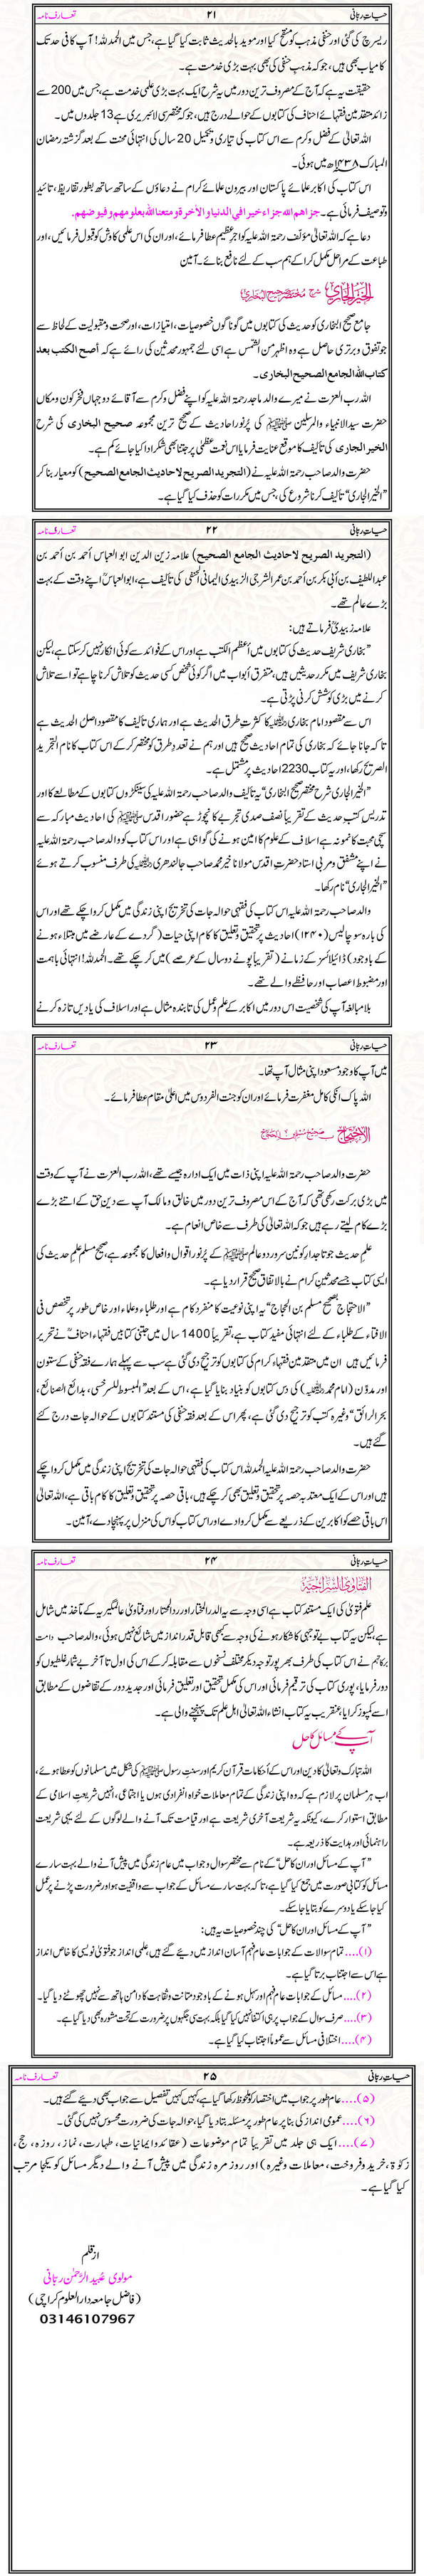 حیاتِ ربّانی ۲۱ تعارف نامہ
ریسرچ کی گئی اور حنفی مذہب کو منقح کیا اور موید بالحدیث ثابت کیا گیا ہے، جس میں الحمدللہ! آپ کافی حد تک
کامیاب بھی ہیں، جو کہ مذہب حنفی کی بھی بہت بڑی خدمت ہے۔
حقیقت یہ ہے کہ آج کے مصروف ترین دور میں یہ شرح ایک بہت بڑی علمی خدمت ہے، جس میں 200 سے
زائد متقدمین فقہائے احناف کی کتابوں کے حوالے درج ہیں، جو کہ مختصر سی لائبریری ہے 13 جلدوں میں۔
اللہ تعالیٰ کے فضل وکرم سے اس کتاب کی تیاری وتکمیل 20 سال کی انتہائی محنت کے بعد گزشتہ رمضان
المبارک ۱۴۳۸ھ میں ہوئی۔
اس کتاب کی اکابر علمائے پاکستان اور بیرون علمائے کرام نے دعاؤں کے ساتھ ساتھ بطور تقاریظ، تائید
وتوصیف فرمائی ہے۔ جزاهم الله جزاء خيرا في الدنيا والآخرة ومتعنا الله بعلومهم وفيوضهم.
دعا ہے کہ اللہ تعالیٰ مؤلف رحمۃ اللہ علیہ کو اجرِ عظیم عطا فرمائے، اور ان کی اس علمی کاوش کو قبول فرمائیں، اور
طباعت کے مراحل مکمل کرا کے ہم سب کے لئے نافع بنائے۔ آمین
الخیر الجاری شرح مختصر صحیح البخاری
جامع صحیح البخاری کو حدیث کی کتابوں میں گوناگوں خصوصیات، امتیازات، اور صحت ومقبولیت کے لحاظ سے
جو تفوق و برتری حاصل ہے وہ اظہر من الشمس ہے اسی لئے جمہور محدثین کی رائے ہے کہ أصح الکتب بعد
کتاب اللہ الجامع الصحیح البخاری۔
اللہ رب العزت نے میرے والد ماجد رحمۃ اللہ علیہ کو اپنے فضل وکرم سے آقائے دو جہاں فخر کون ومکاں
حضرت سید الانبیاء والمرسلین ﷺ کی پُرنور احادیث کے صحیح ترین مجموعہ صحیح البخاری کی شرح
الخیر الجاری کی تألیف کا موقع عنایت فرمایا اس نعمت عظمیٰ پر جتنا بھی شکر ادا کیا جائے کم ہے۔
حضرت والد صاحب رحمۃ اللہ علیہ نے (التجرید الصریح لاحادیث الجامع الصحیح) کو معیار بنا کر
”الخیر الجاری“ تألیف کرنا شروع کی، جس میں مکررات کو حذف کیا گیا ہے۔
حیاتِ ربّانی ۲۲ تعارف نامہ
(التجرید الصریح لاحادیث الجامع الصحیح) علامہ زین الدین ابو العباس أحمد بن أحمد بن
عبداللطیف بن أبی بکر بن أحمد بن عمر الشرجی الزبیدی الیمانی الحنفی کی تألیف ہے، ابو العباسؒ اپنے وقت کے بہت
بڑے عالم تھے۔
علامہ زبیدیؒ فرماتے ہیں:
”بخاری شریف حدیث کی کتابوں میں أعظم الکتب ہے اور اس کے فوائد سے کوئی انکار نہیں کر سکتا ہے، لیکن
بخاری شریف میں مکرر حدیثیں ہیں، متفرق أبواب میں اگر کوئی شخص کسی حدیث کو تلاش کرنا چاہے تو اسے تلاش
کرنے میں بڑی کوشش کرنی پڑتی ہے۔
اس سے مقصود امام بخاریؒ کا کثرت طرق الحدیث ہے اور ہماری تألیف کا مقصود اصل الحدیث ہے
تاکہ جانا جائے کہ بخاری کی تمام احادیث صحیح ہیں اور ہم نے تعددِ طرق کو مختصر کر کے اس کتاب کا نام التجرید
الصریح رکھا، اور یہ کتاب 2230 احادیث پر مشتمل ہے۔
”الخیر الجاری شرح مختصر صحیح البخاری“ یہ تألیف والد صاحب رحمۃ اللہ علیہ کی سینکڑوں کتابوں کے مطالعے کا اور
تدریس کتب حدیث کے تقریباً نصف صدی تجربے کا نچوڑ ہے حضور اقدس ﷺ کی احادیث مبارکہ سے
سچی محبت کا نمونہ ہے اسلاف کے علوم کا امین ہونے کی گواہی ہے اور اس کتاب کو والد صاحب رحمۃ اللہ علیہ
نے اپنے مشفق ومربی استاد حضرتِ اقدس مولانا خیر محمد صاحب جالندھریؒ کی طرف منسوب کرتے ہوئے
”الخیر الجاری“ نام رکھا۔
والد صاحب رحمۃ اللہ علیہ اس کتاب کی فقہی حوالہ جات کی تخریج اپنی زندگی میں مکمل کروا چکے تھے اور اس
کی بارہ سو چالیس (۱۲۴۰) احادیث پر تحقیق وتعلیق کا کام اپنی حیات (گردے کے عارضے میں مبتلاء ہونے
کے باوجود) ڈائیلائسز کے زمانے (تقریباً پونے دو سال کے عرصے) میں کر چکے تھے۔ الحمدللہ! انتہائی باہمت
اور مضبوط اعصاب اور حافظے والے تھے۔
بلا مبالغہ آپ کی شخصیت اس دور میں اکابر کے علم وعمل کی تابندہ مثال ہے اور اسلاف کی یادیں تازہ کرنے
حیاتِ ربّانی ۲۳ تعارف نامہ
میں آپ کا وجود مسعود اپنی مثال آپ تھا۔
اللہ پاک انکی کامل مغفرت فرمائے اور ان کو جنت الفردوس میں اعلیٰ مقام عطا فرمائے۔
الاحتجاج بصحیح مسلم بن الحجاج
حضرت والد صاحب رحمۃ اللہ علیہ اپنی ذات میں ایک ادارہ جیسے تھے، اللہ رب العزت نے آپ کے وقت
میں بڑی برکت رکھی تھی کہ آج کے اس مصروف ترین دور میں خالق ومالک آپ سے دین حق کے اتنے بڑے
بڑے کام لیتے رہے ہیں جو کہ اللہ تعالیٰ کی طرف سے خاص انعام ہے۔
علم حدیث جو تاجدارِ کونین سرورِ دو عالم ﷺ کے پُرنور اقوال و افعال کا مجموعہ ہے، صحیح مسلم علم حدیث کی
ایسی کتاب جسے محدثین کرام نے بالاتفاق صحیح قرار دیا ہے۔
”الاحتجاج بصحیح مسلم بن الحجاج“ یہ اپنی نوعیت کا منفرد کام ہے اور طلباء وعلماء اور خاص طور پر تخصص فی
الافتاء کے طلباء کے لئے انتہائی مفید کتاب ہے، تقریباً 1400 سال میں جتنی کتابیں فقہاء احنافؒ نے تحریر
فرمائیں ہیں ان میں متقدمین فقہاء کرام کی کتابوں کو ترجیح دی گئی ہے سب سے پہلے ہمارے فقہ حنفی کے ستون
اور مدوّن (امام محمدؒ) کی دس کتابوں کو بنیاد بنایا گیا ہے، اس کے بعد ”المبسوط للسرخسی، بدائع الصنائع،
بحر الرائق“ وغیرہ کتب کو ترجیح دی گئی ہے، پھر اس کے بعد فقہ حنفی کی مستند کتابوں کے حوالہ جات درج کئے
گئے ہیں۔
حضرت والد صاحب رحمۃ اللہ علیہ الحمدللہ اس کتاب کی فقہی حوالہ جات کی تخریج اپنی زندگی میں مکمل کروا چکے
ہیں اور اس کے ایک معتد بہ حصہ پر تحقیق وتعلیق بھی کر چکے ہیں، باقی حصہ پر تحقیق وتعلیق کا کام باقی ہے، اللہ تعالیٰ
اس باقی حصے کو اکابرین کے ذریعے سے مکمل کروا دے اور اس کتاب کو اس کی منزل پر پہنچا دے، آمین۔
حیاتِ ربّانی ۲۴ تعارف نامہ
الفتاوی السراجیۃ
علم فتویٰ کی ایک مستند کتاب ہے اسی وجہ سے یہ الدر المختار اور رد المحتار اور فتاویٰ عالمگیریہ کے مآخذ میں شامل
ہے، لیکن یہ کتاب بے توجہی کا شکار ہونے کی وجہ سے کبھی قابل قدر انداز میں شائع نہیں ہوئی، والد صاحب دامت
برکاتہم نے اس کتاب کی طرف بھرپور توجہ دیکر مختلف نسخوں سے مقابلہ کر کے اس کی اول تا آخر بے شمار غلطیوں کو
دور فرمایا، پوری کتاب کی ترقیم فرمائی اور اس کی مکمل تحقیق اور تعلیق فرمائی اور جدید دور کے تقاضوں کے مطابق
اسے کمپوز کرایا، عنقریب یہ کتاب انشاء اللہ تعالیٰ اہل علم تک پہنچنے والی ہے۔
آپ کے مسائل کا حل
اللہ تبارک وتعالیٰ کا دین اور اس کے أحکامات قرآن کریم اور سنتِ رسول ﷺ کی شکل میں مسلمانوں کو عطا ہوئے،
اب ہر مسلمان پر لازم ہے کہ وہ اپنی زندگی کے تمام معاملات خواہ انفرادی ہوں یا اجتماعی، انہیں شریعتِ اسلامی کے
مطابق استوار کرے، کیونکہ یہ شریعت آخری شریعت ہے اور قیامت تک آنے والے لوگوں کے لئے یہی شریعت
راہنمائی اور ہدایت کا ذریعہ ہے۔
”آپ کے مسائل اور ان کا حل“ کے نام سے مختصر سوال و جواب میں عام زندگی میں پیش آنے والے بہت سارے
مسائل کو کتابی صورت میں جمع کیا گیا ہے، تاکہ بہت سارے مسائل کے جواب سے واقفیت ہو اور ضرورت پڑنے پر عمل
کیا جا سکے یا دوسرے کو بتایا جا سکے۔
”آپ کے مسائل اور ان کا حل“ کی چند خصوصیات یہ ہیں:
(۱)۔۔۔۔ تمام سوالات کے جوابات عام فہم آسان انداز میں دیئے گئے ہیں، علمی انداز جو فتویٰ نویسی کا خاص انداز
ہے اس سے اجتناب برتا گیا ہے۔
(۲)۔۔۔۔ مسائل کے جوابات عام فہم اور سہل ہونے کے باوجود متانت و ثقاہت کا دامن ہاتھ سے نہیں چھوٹنے دیا گیا۔
(۳)۔۔۔۔ صرف سوال کے جواب پر ہی اکتفا نہیں کیا گیا بلکہ بہت سی جگہوں پر ضرورت کے تحت مشورہ بھی دیا گیا ہے۔
(۴)۔۔۔۔ اختلافی مسائل سے عموماً اجتناب کیا گیا ہے۔
حیاتِ ربّانی ۲۵ تعارف نامہ
(۵)۔۔۔۔ عام طور پر جواب میں اختصار کو ملحوظ رکھا گیا ہے، کہیں کہیں تفصیل سے جواب بھی دیئے گئے ہیں۔
(۶)۔۔۔۔ عمومی انداز کی بنا پر عام طور پر مسئلہ بتا دیا گیا، حوالہ جات کی ضرورت محسوس نہیں کی گئی۔
(۷)۔۔۔۔ ایک ہی جلد میں تقریباً تمام موضوعات (عقائد و ایمانیات، طہارت، نماز، روزہ، حج،
زکوٰۃ، خرید و فروخت، معاملات وغیرہ) اور روز مرہ زندگی میں پیش آنے والے دیگر مسائل کو یکجا مرتب
کیا گیا ہے۔
از قلم
مولوی عبید الرّحمٰن ربّانی
(فاضل جامعہ دار العلوم کراچی)
03146107967